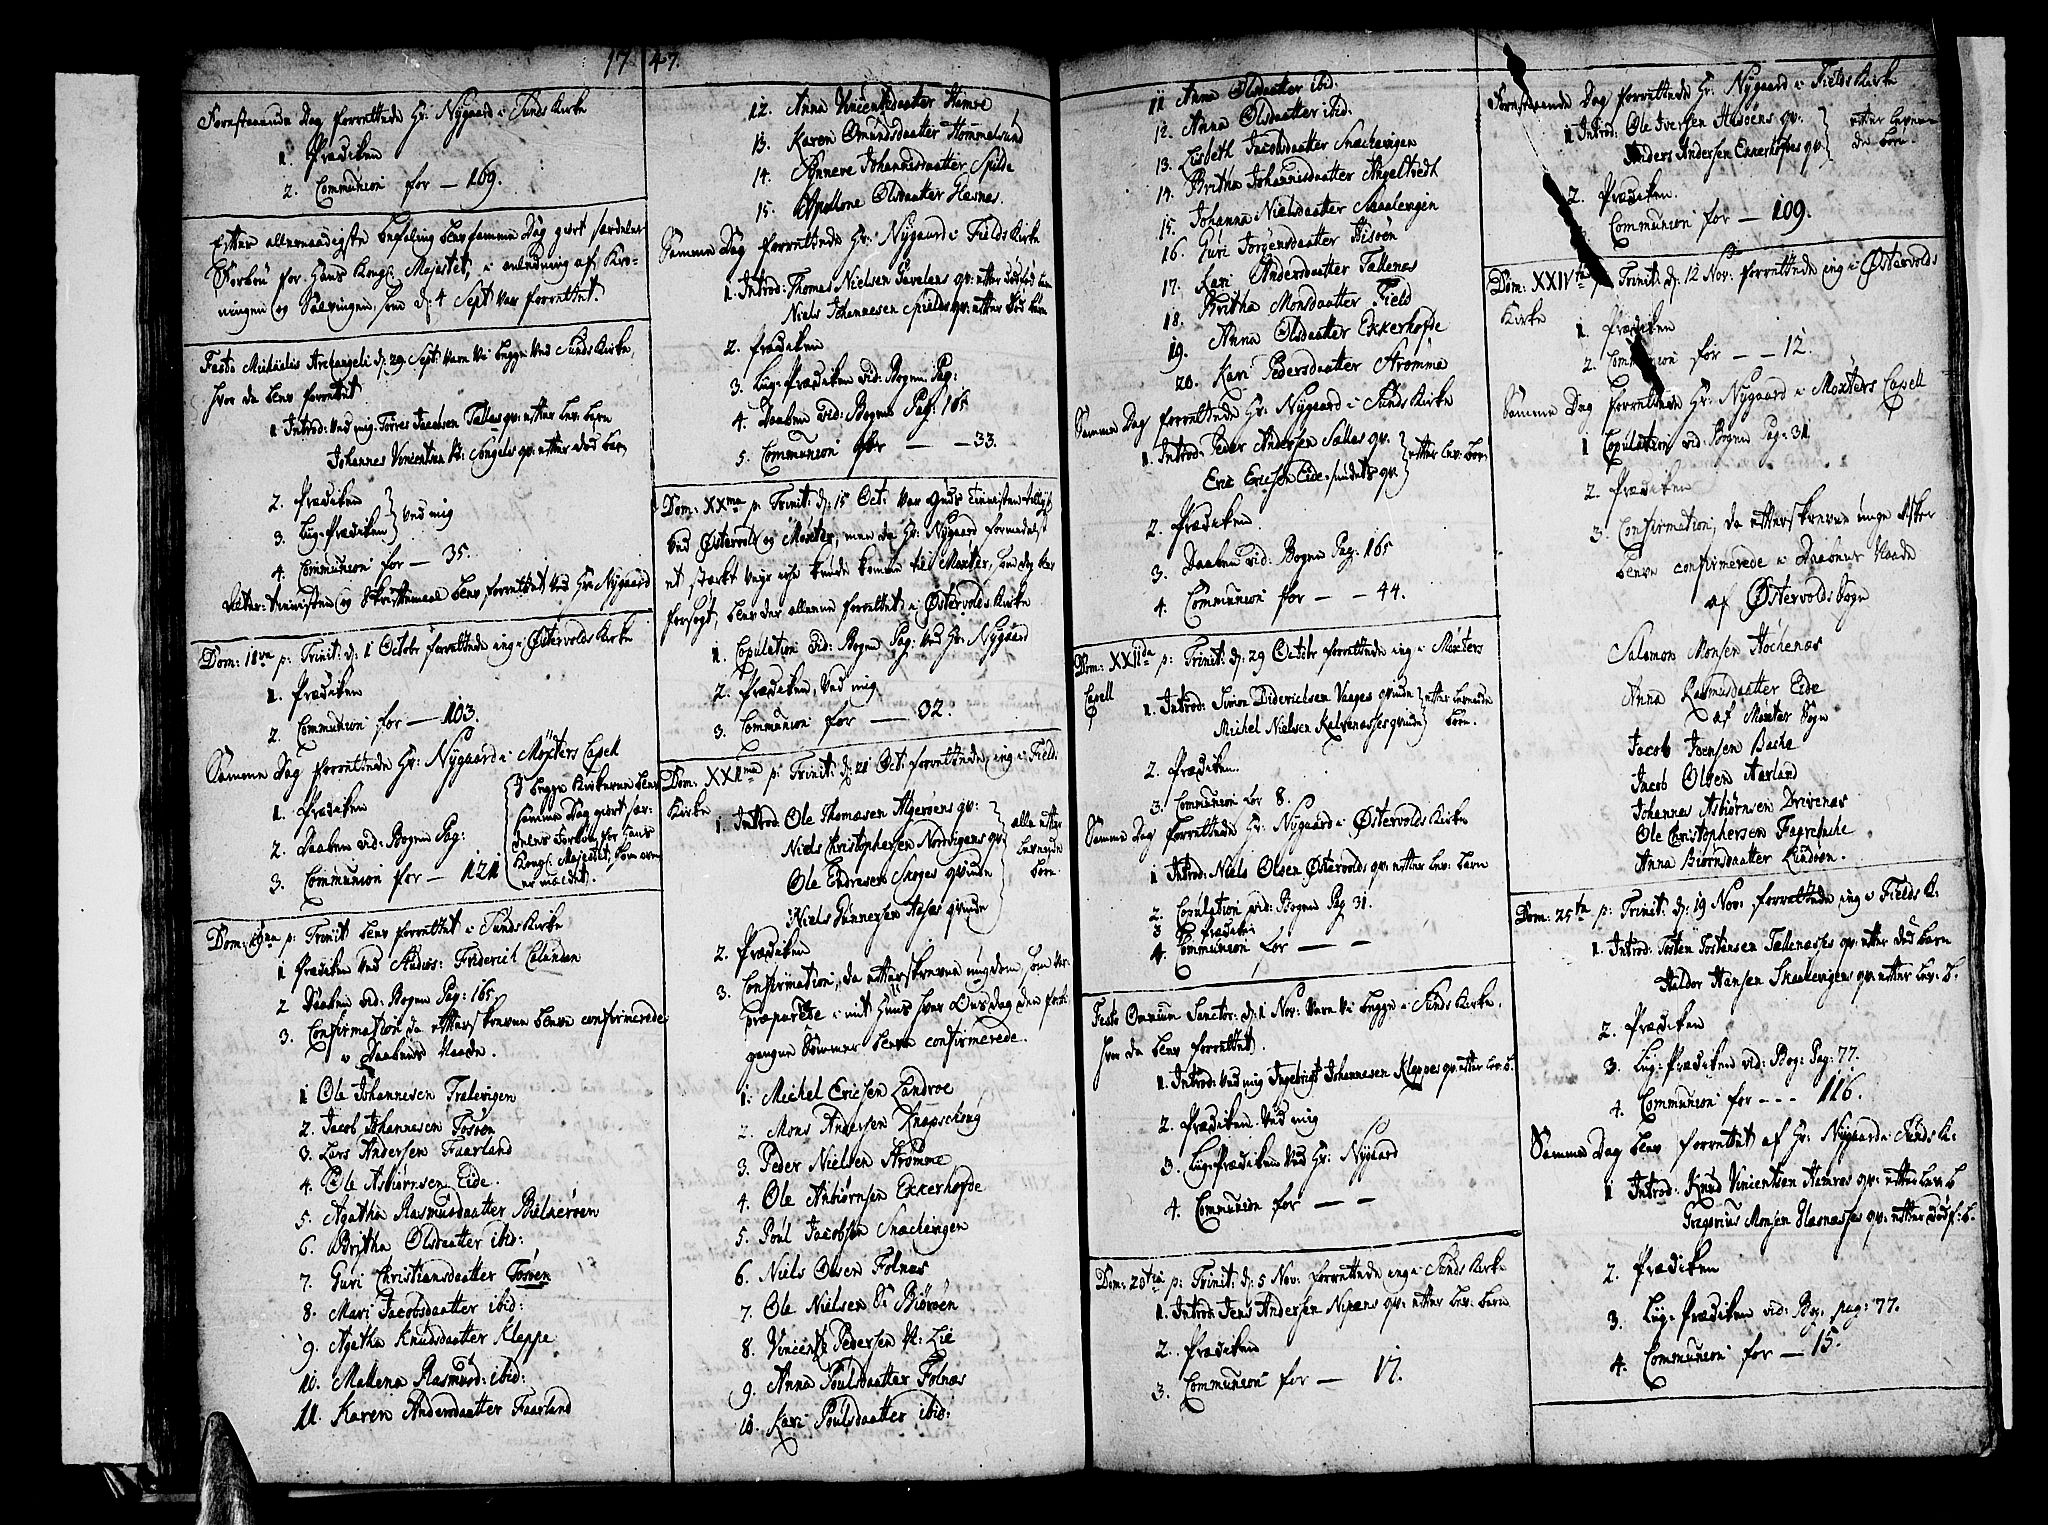 17 47.
Foranstaaende Dag forrettede Hr: Nÿgaard i Sunds Kirke
1. Prædiken
2. Communion for — 169.
Efter allernaadigste befaling blev samme Dag giort særdeles
Forbøn for Hans Kongl: Majestet, i anledning af Kro-
ningen og Salvingen, som d: 4 Sept var forrettet.
Fest: Michaelis Archangeli d: 29 Sept: vare vi begge ved Sunds Kirke,
hvor da blev forrettet
1. Introd: ved mig Torres Jacobsen Tellnes qv: etter lev: barn
Johannes Vincentsen qv: etter død barn
2. Prædiken
3. Lüg-Prædiken } ved mig
4. Communion for — 35.
og Skriftemaal blev forrettet ved Hr: Nÿgaard
Dom: 18va p: Trinit: d: 1 Octobr forrettede ieg i Østervolds Kirke
1. Prædiken
2. Communion for — 103.
Samme Dag forrettede Hr: Nÿgaard i Møxters Capell
1. Prædiken
2. Daaben vid: Bogen Pag:
3. Communion for — 121
I begge Kirkerne blev
samme Dag giort sær-
deles Forbøn for Hans
Kongl: Majestet, som oven
er meldet.
Dom: 19na p: Trinit blev forrettet i Sunds Kirke
1 Prædiken ved Studios: Friderich Calundan
2 Daaben vid: Bogen Pag: 165
3. Confirmation, da efterskrevne bleve confirmerede
i Daabens Naade.
1 Ole Johannesen Trælevigen
2. Jacob Johannesen Tosøen
3. Lars Andersen Faarland
4. Ole Asbiørnsen Eide.
5. Agatha Rasmusdaatter Bielkerøen
6. Britha Olsdaatter ibid:
7. Guri Christiansdaatter Tosøen
8. Mari Jacobsdaatter ibid:
9. Agatha Knudsdaatter Kleppe
10. Mallena Rasmusd: ibid:
11. Karen Andersdaatter Faarland
12. Anna Vincentsdaatter Hamre
13. Karen Omundsdaatter Hommelsund
14. Synneve Johannisdaatter Spilde
15. Apollone Olsdaatter Glesnes.
Samme Dag forrettede Hr: Nÿgaard i Fields Kirke
1. Introd: Thomas Nielsen qv: etter død barn
Niels Johannesen Spieldes qv: etter død barn
2. Prædiken
3. Lüg-Prædiken vid: Bogen Pag:
4. Daaben vid: Bogen Pag: 165
5. Communion for — — 33.
Dom: XXma p: Trinit: d: 15 Oct: var Guds Tieniste tillyst
ved Østervold og Møxter, men da Hr: Nÿgaard formedelst
et stærkt veyr ikke kunde komme til Møxter, som dog var
forsøgt, blev der alleene forrettet i Østervolds Kirke
1. Copulation vid: Bogen Pag: ved Hr: Nÿgaard
2. Prædiken ved mig
3. Communion for — 32.
Dom: XXIma p: Trinit: d: 21 Oct: forrettede ieg i Field
Kirke
1. Introd: Ole Thomæsen Algerøens qv:
Niels Christophersen Nordvigens qv:
Ole Endresen Skoges qvinde
Niels Gunnersen Aases qvinde
alle etter
levende
børn.
2. Prædiken
3. Confirmation, da efterskrevne ungdom, som var
præpareret i mit Huus hver Onsdag den forbi-
gangne Sommer bleve confirmerede.
1. Michel Ericsen Landroe
2. Mons Andersen Knapschoug
3. Peder Nielsen Strømme
4. Ole Anbiørnsen Ekkerhofde
5. Poul Jacobsen Snechevigen
6. Niels Olsen Folnæs
7. Ole Nielsen Biørøen
8. Vincent Pedersen St: Lie
9. Anna Poulsdaatter Folnæs
10. Kari Poulsdaatter ibid:
11 Anna Olsdaatter ibid:
12. Anna Olsdaatter ibid:
13. Lisbeth Jacobsdaatter Snechevigen
14. Britha Johannisdaatter Angeltvedt
15. Johanna Nielsdaatter Skaalevigen
16. Guri Jorgensdaatter Tisøen
17. Kari Andersdaatter Tellenæs
18. Britha Monsdaatter Field
19. Anna Olsdaatter Ekkerhofde
20. Kari Pedersdaatter Strømme
Samme Dag forrettede Hr: Nÿgaard i Sunds Kirke
1. Introd: Peder Andersen Tellnæs qv.
Eric Ericsen Eide-sundets qv. } etter lev: børn
2. Prædiken
3. Daaben vid: Bogen Pag: 165
4. Communion for — — 44.
Dom: XXIIda p: Trinit: d: 29 Octobr forrettede ieg i Møxters
Capell
1. Introd: Simon Diderichsen Vaages qvinde
Michel Nielsen Kalvenæsses qvinde } etter levende
børn.
2. Prædiken.
3. Communion for 8.
Samme Dag forrettede Hr: Nÿgaard i Østervolds Kirke
1 Introd: Niels Olsen Østervolds qv: etter lev: barn
2. Copulation vid: Bogen Pag 31.
3 Prædiken
4. Communion for — —
Festo Omnium Sanctor: d: 1 Nov: vare vi begge i Sunds Kirke,
hvor da blev forrettet.
1. Introd: ved mig Ingebrigt Johannesen Kleppes qv: etter lev: b.
2. Prædiken ved mig
3. Lüg-Prædiken ved Hr: Nÿgaard
4. Communion for — —
Dom: 23tia p: Trinit: d: 5 Nov: forrettede ieg i Sunds Kirke
1. Introd: Jens Andersen Nipens qv: etter lev: barn
2. Prædiken
3. Communion for — 17.
Foranstaaende Dag forrettede Hr: Nÿgaard i Fields Kirke
1 Introd: Ole Iversen qv:
Anders Andersen Ekkerhofdes qv: } etter levende
børn.
2. Prædiken.
Communion for — 109.
Dom: XXIVta p: Trinit: d: 12 Nov: forrettede ieg i Østervolds
Kirke
1. Prædiken
2. Communion for — — 12.
Samme Dag forrettede Hr: Nÿgaard i Møxters Capell
1 Copulation vid: Bogen Pag: 31
2. Prædiken
3. Confirmation, da efterskrevne unge
bleve confirmerede i Daabens Naade
af Østervolds Sogn
Salomon Monsen Høchenæs
Anna Rasmusdaatter Eide
af Møxter Sogn
Jacob Joensen Bache
Jacob Olsen Aarland
Johannes Asbiørnsen Drivenæs
Ole Christophersen
Anna Biørnsdaatter Lundøen.
Dom: 25ta p: Trinit: d: 19 Nov: forrettede ieg i Fields K.
1. Introd: Tosten Tostensen Tellenæsses qv: etter død barn
Haldor Hansen Skaalevigens qv: etter lev: b.
2. Prædiken
3. Lüg-Prædiken vid: Bog: Pag: 77.
4. Communion for - - - 116.
Samme Dag blev forrettet af Hr: Nÿgaard i Sunds K:
1 Introd: Knud Vincentsen Hamres qv: etter lev: b
Gregorius Monsen Glesnæsses qv: etter død: b.
2. Prædiken
3. Lüg-Prædiken vid: Bog: pag: 77.
4. Communion for — 15.